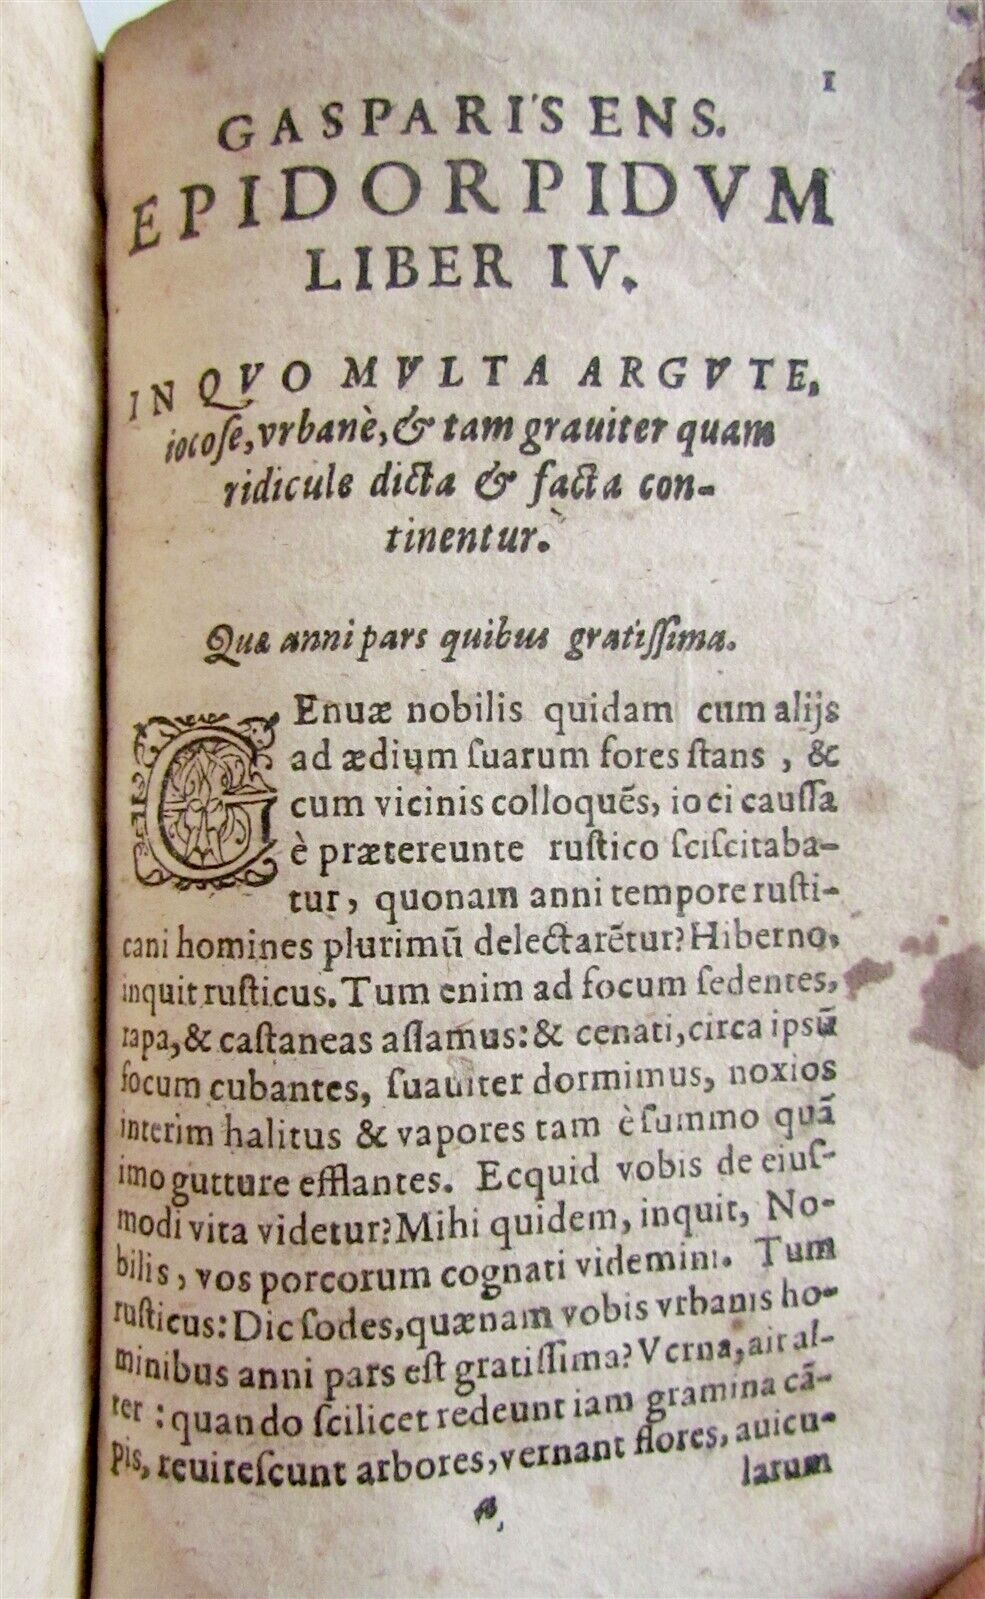 1
GASPARIS ENS.
EPIDORPIDVM
LIBER IV.
IN QVO MVLTA ARGVTE,
iocoſe, vrbanè, & tam grauiter quam
ridicule dicta & facta con-
tinentur.
Quæ anni pars quibus gratiſſima.
GEnuæ nobilis quidam cum alijs
ad ædium ſuarum fores ſtans, &
cum vicinis colloquẽs, ioci cauſſa
è prætereunte ruſtico ſciſcitaba-
tur, quonam anni tempore ruſti-
cani homines plurimũ delectarẽtur? Hiberno,
inquit ruſticus. Tum enim ad focum ſedentes,
rapa, & caſtaneas aſſamus: & cenati, circa ipsũ
focum cubantes, ſuauiter dormimus, noxios
interim halitus & vapores tam è ſummo quã
imo gutture efflantes. Ecquid vobis de eiuſ-
modi vita videtur? Mihi quidem, inquit, No-
bilis, vos porcorum cognati videmini. Tum
ruſticus: Dic ſodes, quænam vobis vrbanis ho-
minibus anni pars eſt gratiſſima? Verna, ait al-
ter: quando ſcilicet redeunt iam gramina cã-
pis, reuireſcunt arbores, vernant flores, auicu-
larum